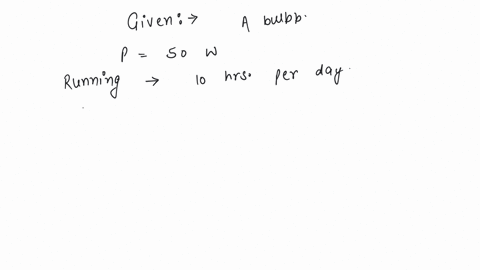 Given:→ A bulbb.
P = 50 W
Running → 10 hrs. per day.